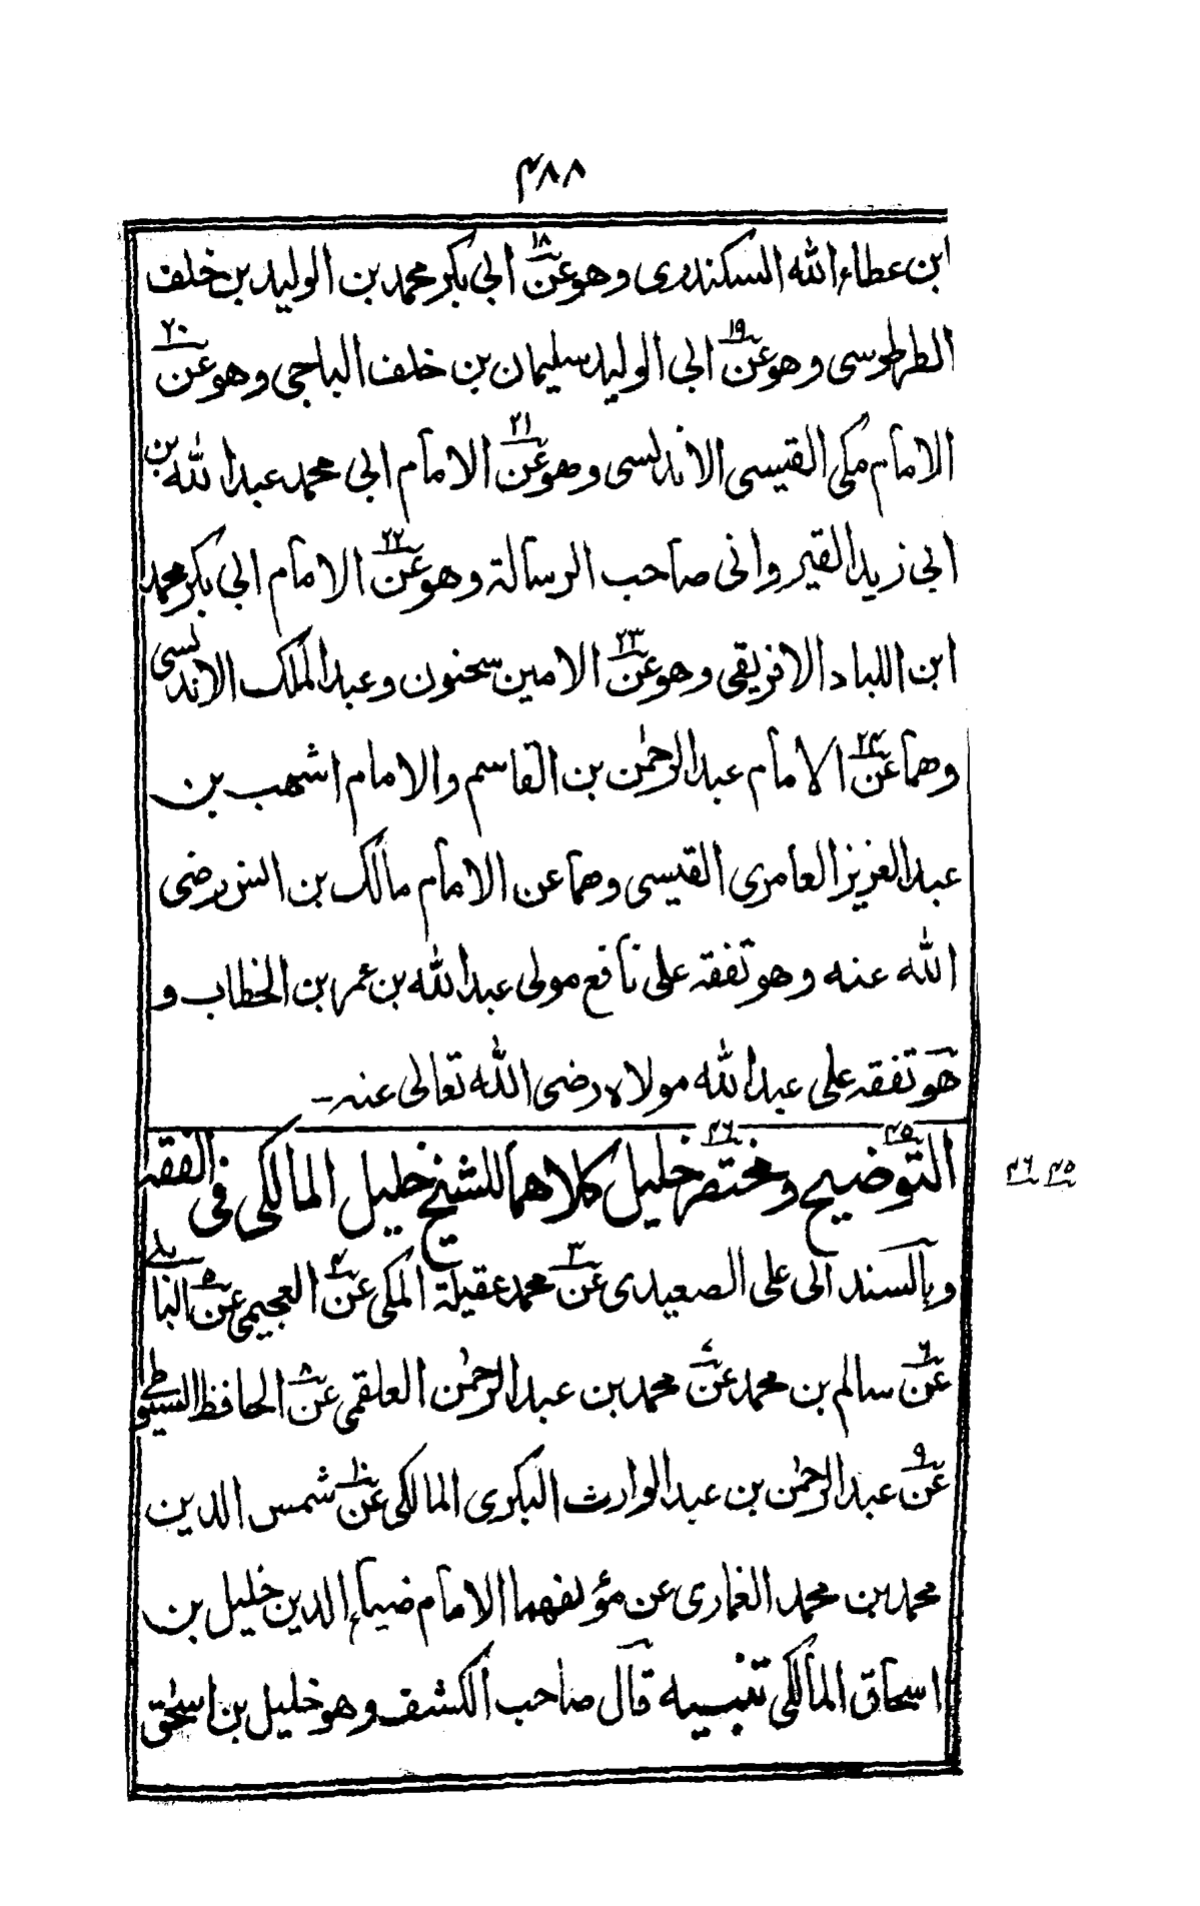 ٤٨٨
ابن عطاء الله السكندرى وهو عن١٨ ابى بكر محمد بن الوليد بن خلف
الطرطوسى وهو عن١٩ ابى الوليد سليمان بن خلف الباجى وهو عن٢٠
الامام مكى القيسى الاندلسى وهو عن٢١ الامام ابى محمد عبد الله بن
ابى زيد القيروانى صاحب الرسالة وهو عن٢٢ الامام ابى بكر محمد
ابن اللباد الافريقى وهو عن٢٣ الامين سحنون وعبد الملك الاندلسى
وهما عن٢٤ الامام عبد الرحمٰن بن القاسم والامام اشهب بن
عبد العزيز العامرى القيسى وهما عن الامام مالك بن انس رضى
الله عنه وهو تفقه على نافع مولى عبد الله بن عمر بن الخطاب و
هو تفقه على عبد الله مولاه رضى الله تعالى عنه ـ
التوضيح٤٥ ومختصر٤٦ خليل كلاهما للشيخ خليل المالكى فى الفقه
٤٥ ٤٦
وبالسند الى على الصعيدى عن٣ محمد عقيلة المكى عن٤ العجيمى عن٥ البابلى
عن٦ سالم بن محمد عن٧ محمد بن عبد الرحمٰن العلقمى عن٨ الحافظ السيوطى
عن٩ عبد الرحمٰن بن عبد الوارث البكرى المالكى عن١٠ شمس الدين
محمد بن محمد الغمارى عن مؤلفهما الامام ضياء الدين خليل بن
اسحاق المالكى تنبيه قال صاحب الكشف وهو خليل بن اسحٰق